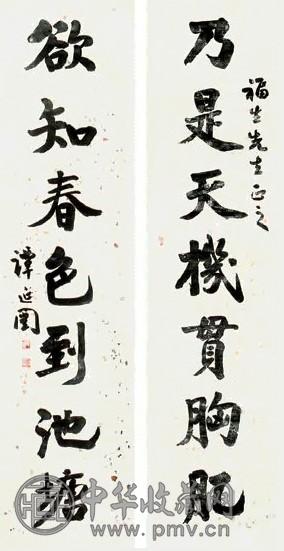 福生先生正之
乃是天機貫胸肊
欲知春色到池塘
譚延闓
中华收藏网
www.pmv.cn